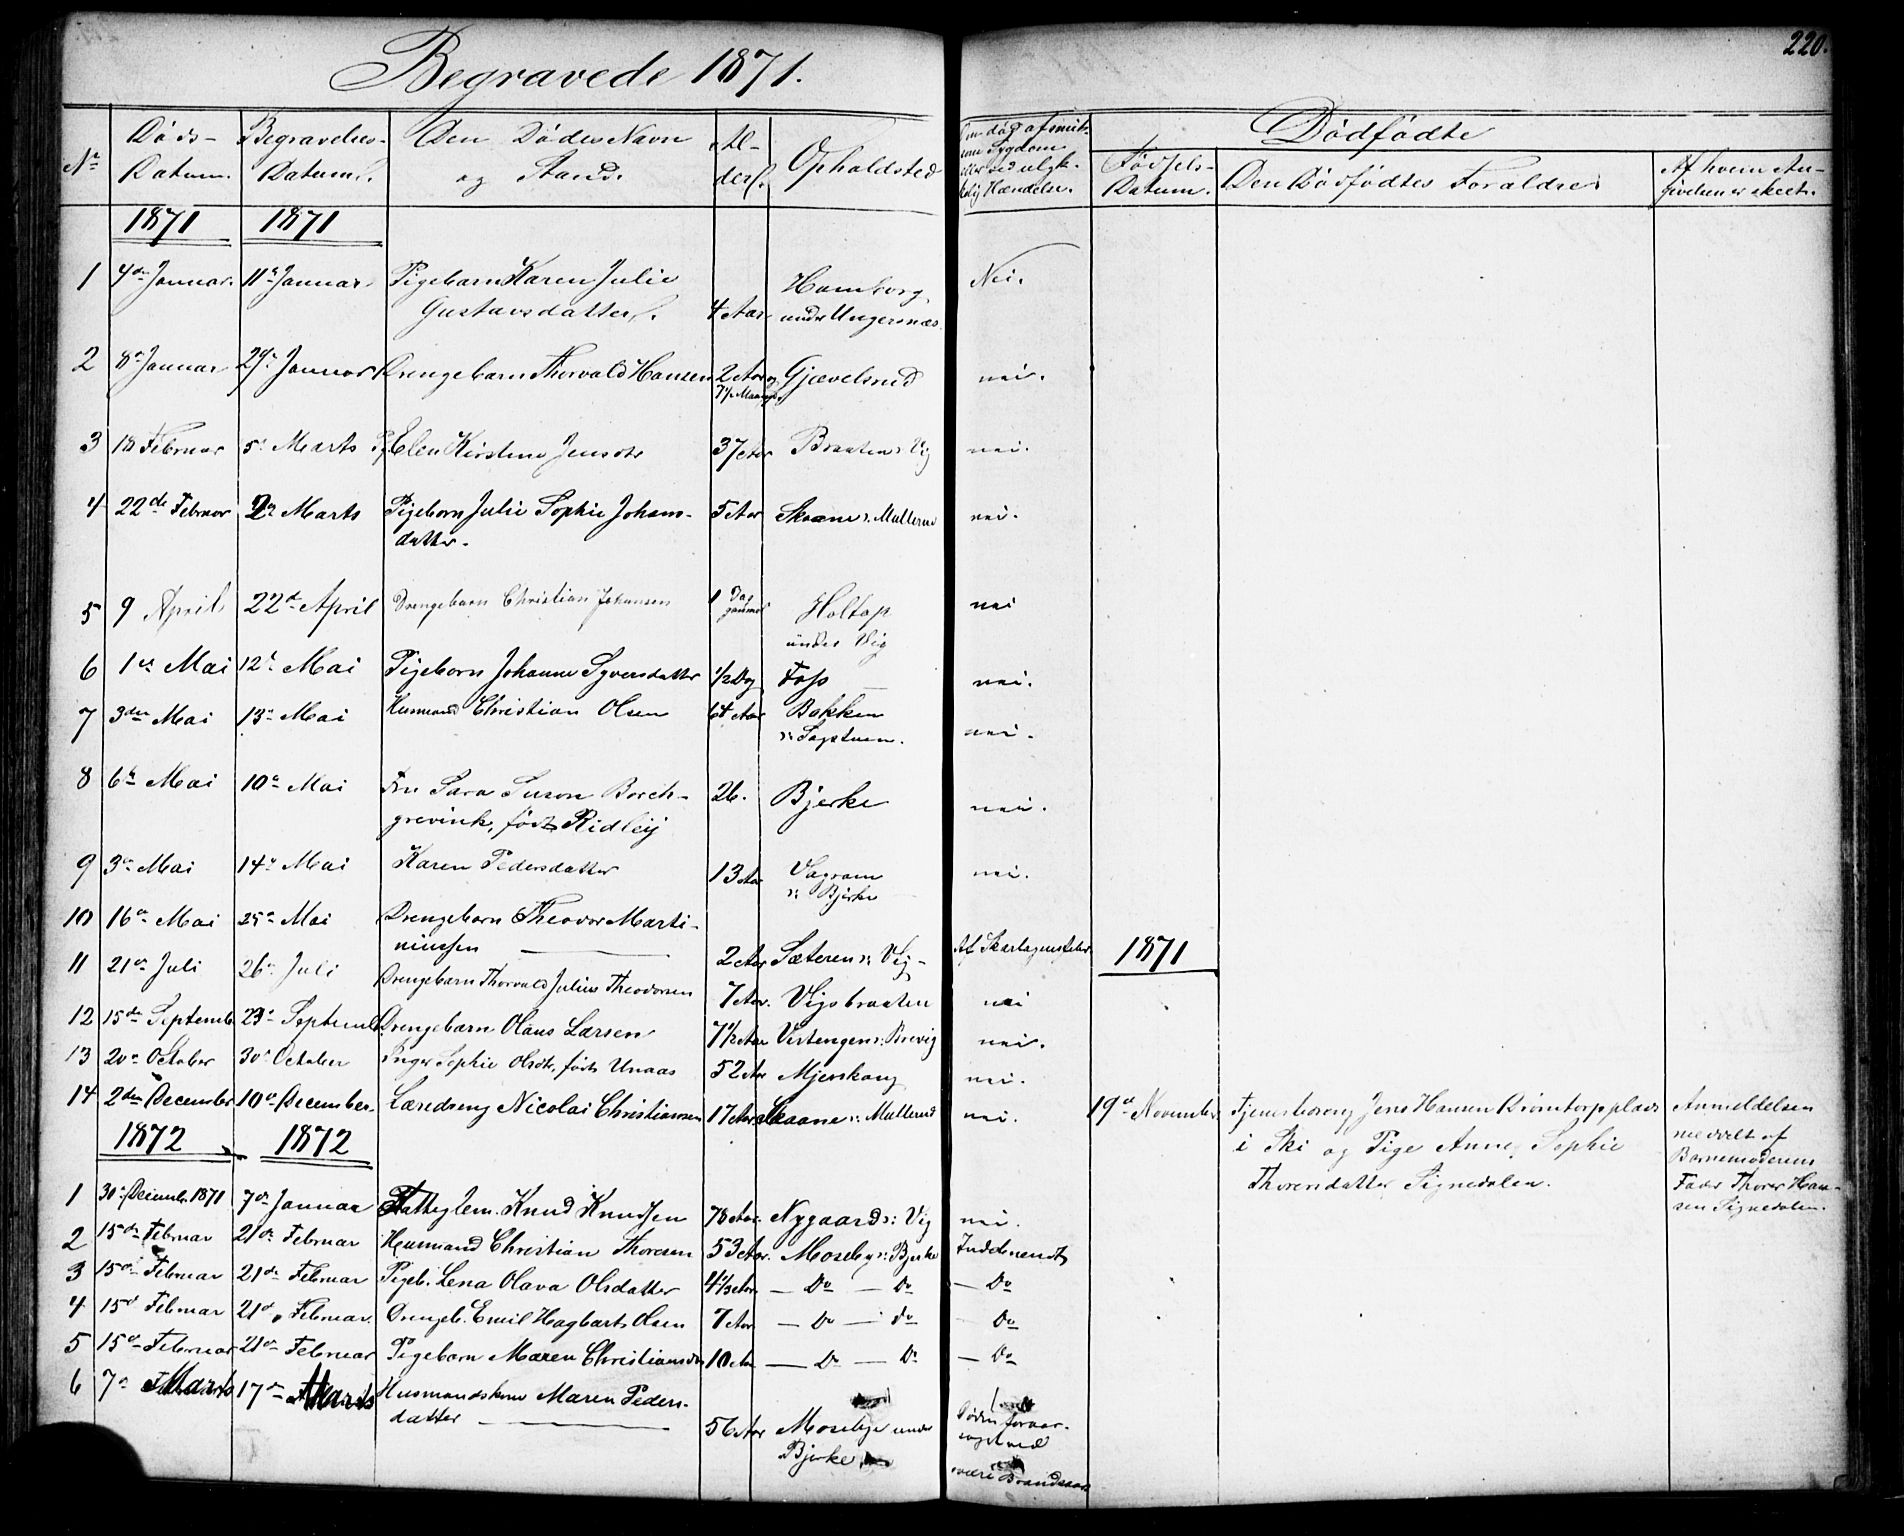 220.
Begravede 1871.
Nr Døds-Datum. Begravelses-Datum. Den Dødes Navn og Stand. Alder. Opholdsted Om død af smitsom Sygdom eller ved ulykkelig Hændelse. Dødfødte
Fødsels-Datum. Den Dødfødtes Forældre. Af hvem Angivelsen er skeet.
1871 1871
1 4de Januar. 11te Januar Pigebarn Karen Julie Hamborg Nei.
Gustavsdatter. 4 Aar under Ungersnæs.
2 8de Januar 29de Januar Drengebarn Thorvald Hansen 2 Aar og Gjævelsrud nei.
7½ Maaned.
3 18 Februar 5te Marts Pg. Elen Kirstine Jensdtr 37 Aar Braaten u: Vig nei.
4 22de Februar Marts Pigebarn Julie Sophie Johans- 5 Aar Skaane u: Mallerud nei.
datter.
5 9 April 22de April Drengebarn Christian Johansen 1 Dag gammel Holtop nei
under Vig
6 1ste Mai 12te Mai Pigebarn Johanne Syversdatter ½ Dag Foss nei.
7 3die Mai 13de Mai Husmand Christian Olsen 64 Aar Bakken nei.
u: Sagstuen.
8 6te Mai 10de Mai Fru Sara Susan Borch- 26. Bjerke nei.
grevink, født Ridley
9 3die Mai 14de Mai Karen Pedersdatter 13 Aar Vagram nei.
u: Bjerke
10 16de Mai 25de Mai Drengebarn Theodor Marti-
niussen 2 Aar Sæteren u: Vig Af Skarlagensfeber 1871
11 21de Juli 26de Juli Drengebarn Thorvald Julius Theodorsen 7 Aar. Vigsbraaten nei
12 15de Septemb. 23de Septemb. Drengebarn Olaus Larsen 7½ Aar Vestengen u: Brevig nei.
13 20de October 30te October Inger Sophie Olsdtr, født Unaas 52 Aar Mjenskoug nei.
14 2den December 10de December. Læredreng Nicolai Christiansen 17 Aar Skaane u: Mallerud nei. 19de November Tjenestedreng Jens Hansen Drömtorpplads Anmeldelsen
1872 1872 i Ski og Pige Anne Sophie meddelt af
Thorersdatter Signedalen. Barnemoderens
1 30te Decembr 1871 7de Januar Fattiglem. Knud Knudsen 78 Aar. Nygaard u: Vig nei. Fader Thorer Han-
sen Signedalen.
2 15de Februar 21de Februar Husmand Christian Thoresen 53 Aar. Moseby u: Bjerke Indebrændt
3 15de Februar 21de Februar Pigeb. Lena Olava Olsdatter 4½ Aar — Do — Do — Do
4 15de Februar 21de Februar. Drengeb. Emil Hagbart Olsen 7 Aar — Do — do Do
5 15de Februar 21de Februar Pigebarn Maren Christiansdtr 10 Aar — Do — Do — Do
6 7de Marts 17de Marts Husmandskone Maren Peders-
datter 56 Aar Moseby under Døden foraar-
Bjerke saget ved
svære Brandsaar